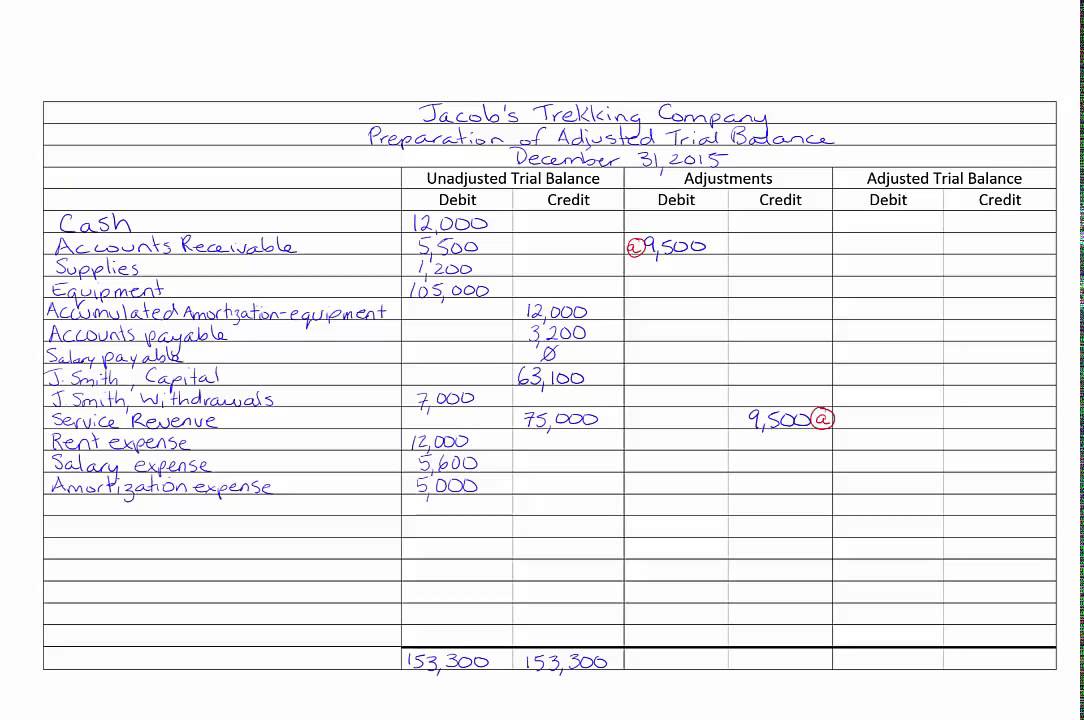 Jacob's Trekking Company
Preparation of Adjusted Trial Balance
December 31, 2015
Unadjusted Trial Balance Adjustments Adjusted Trial Balance
Debit Credit Debit Credit Debit Credit
Cash 12,000
Accounts Receivable 5,500 a 9,500
Supplies 1,200
Equipment 105,000
Accumulated Amortization-equipment 12,000
Accounts payable 3,200
Salary payable Ø
J. Smith, Capital 63,100
J Smith, Withdrawals 7,000
Service Revenue 75,000 9,500 a
Rent expense 12,000
Salary expense 5,600
Amortization expense 5,000
153,300 153,300